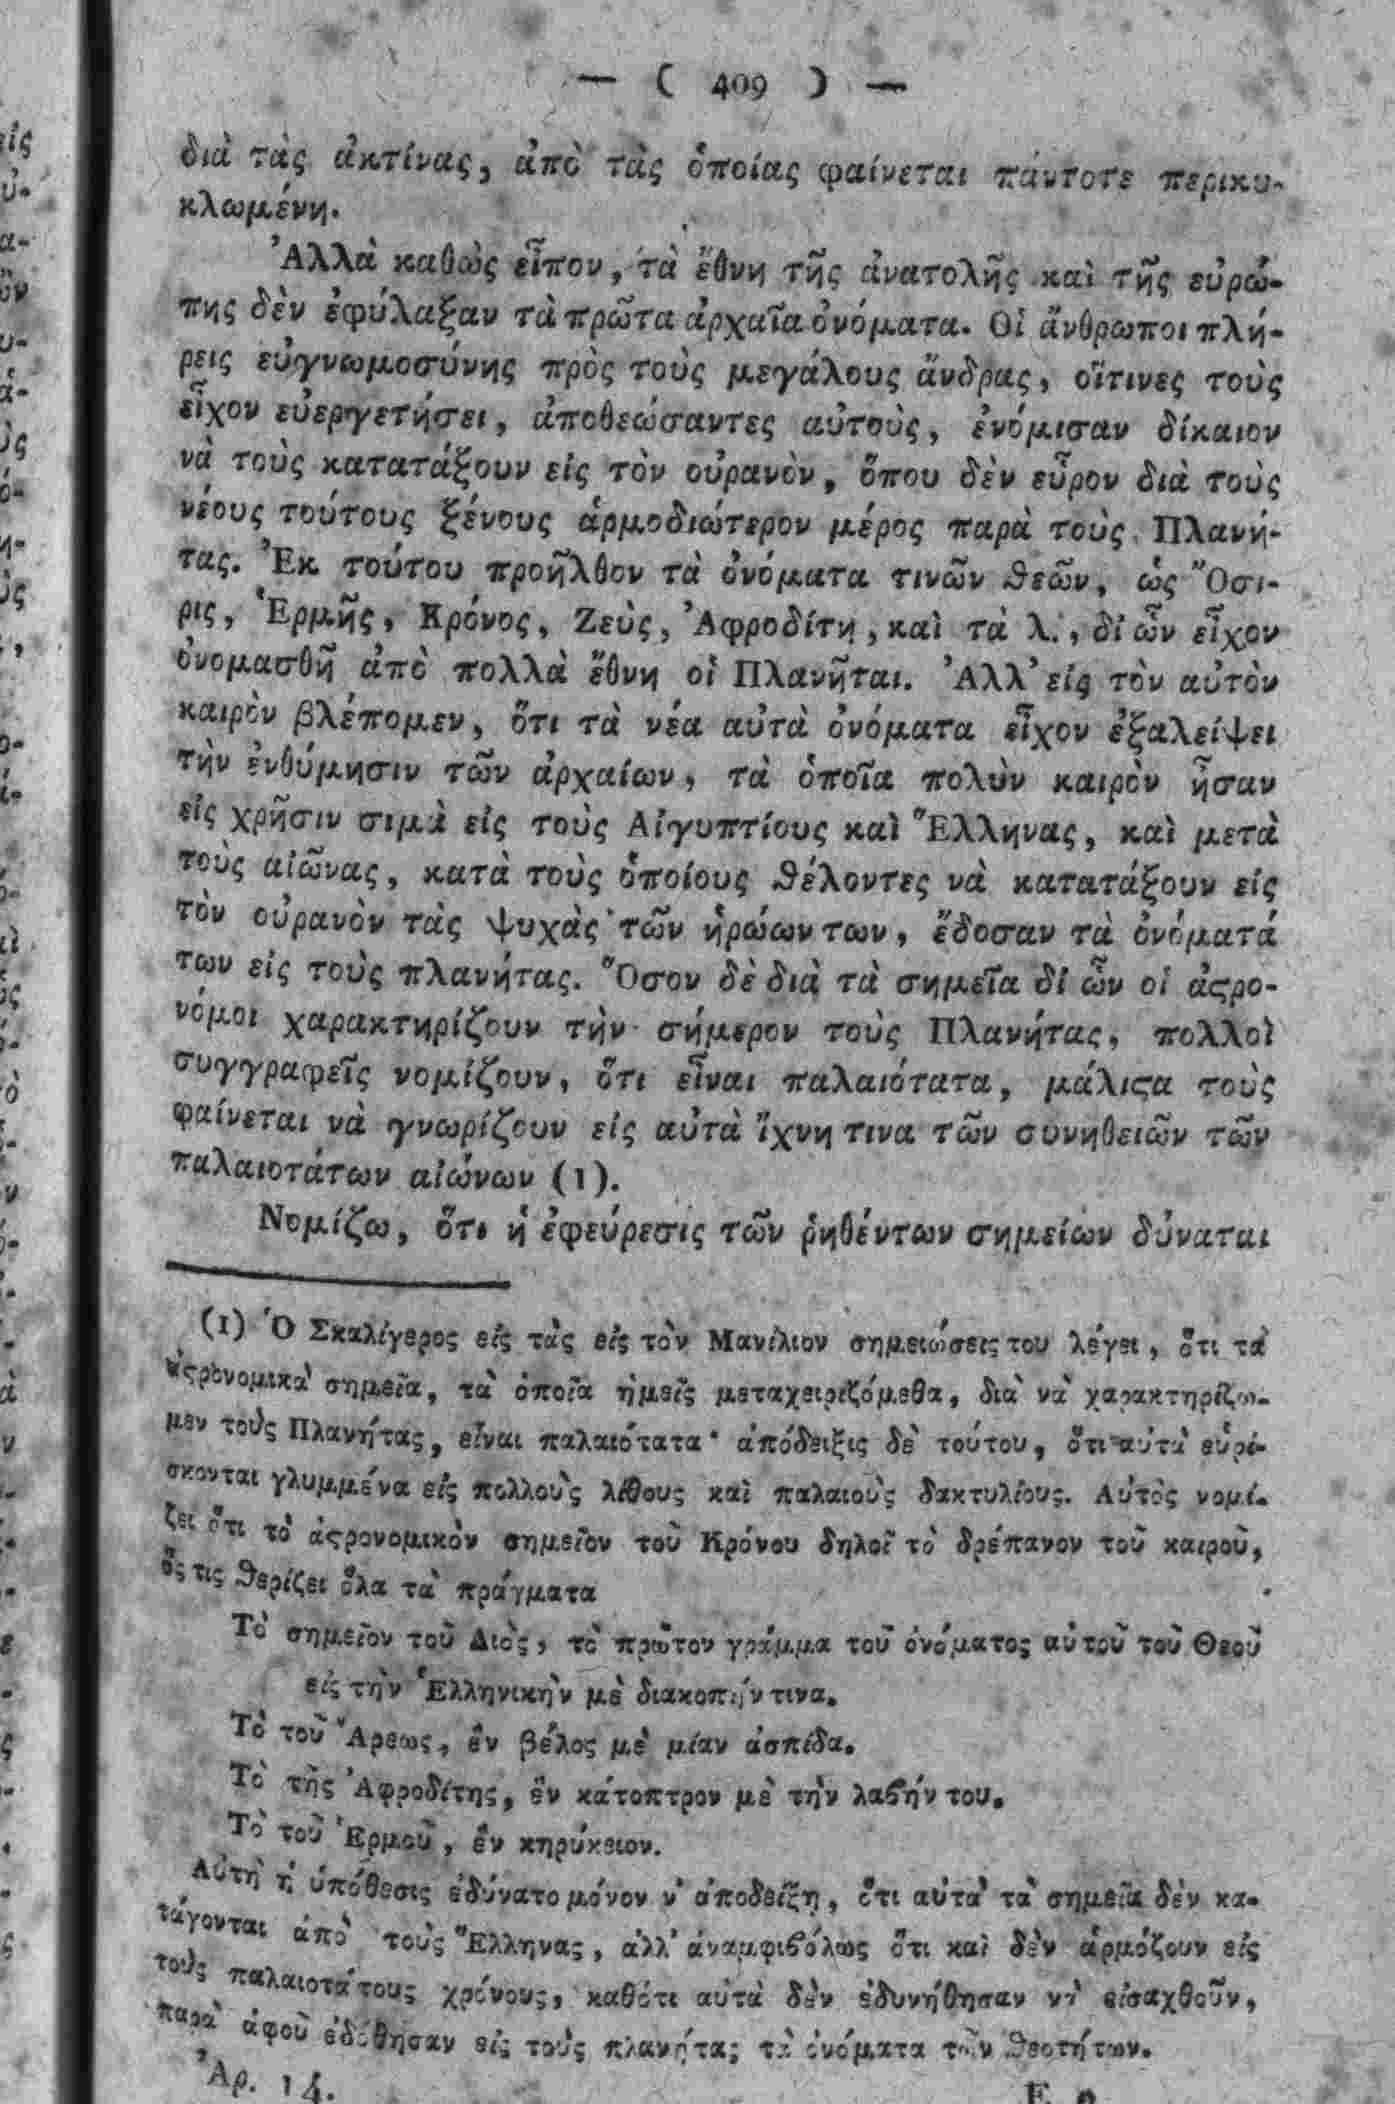 — ( 409 ) —
διὰ τὰς ἀκτίνας, ἀπὸ τὰς ὁποίας φαίνεται πάντοτε περικυ-
κλωμένη.
Ἀλλὰ καθὼς εἶπον, τὰ ἔθνη τῆς ἀνατολῆς καὶ τῆς εὐρώ-
πης δὲν ἐφύλαξαν τὰ πρῶτα ἀρχαῖα ὀνόματα. Οἱ ἄνθρωποι πλή-
ρεις εὐγνωμοσύνης πρὸς τοὺς μεγάλους ἄνδρας, οἵτινες τοὺς
εἶχον εὐεργετήσει, ἀποθεώσαντες αὐτοὺς, ἐνόμισαν δίκαιον
νὰ τοὺς κατατάξουν εἰς τὸν οὐρανὸν, ὅπου δὲν εὗρον διὰ τοὺς
νέους τούτους ξένους ἁρμοδιώτερον μέρος παρὰ τοὺς Πλανή-
τας. Ἐκ τούτου προῆλθον τὰ ὀνόματα τινῶν θεῶν, ὡς Ὄσι-
ρις, Ἑρμῆς, Κρόνος, Ζεὺς, Ἀφροδίτη, καὶ τὰ λ., δί ὧν εἶχον
ὀνομασθῆ ἀπὸ πολλὰ ἔθνη οἱ Πλανῆται. Ἀλλ᾽ εἰς τὸν αὐτὸν
καιρὸν βλέπομεν, ὅτι τὰ νέα αὐτὰ ὀνόματα εἶχον ἐξαλείψει
τὴν ἐνθύμησιν τῶν ἀρχαίων, τὰ ὁποῖα πολὺν καιρὸν ἦσαν
εἰς χρῆσιν σιμὰ εἰς τοὺς Αἰγυπτίους καὶ Ἕλληνας, καὶ μετὰ
τοὺς αἰῶνας, κατὰ τοὺς ὁποίους θέλοντες νὰ κατατάξουν εἰς
τὸν οὐρανὸν τὰς ψυχὰς τῶν ἡρώων των, ἔδοσαν τὰ ὀνόματά
των εἰς τοὺς πλανήτας. Ὅσον δὲ διὰ τὰ σημεῖα δί ὧν οἱ ἀϛρο-
νόμοι χαρακτηρίζουν τὴν σήμερον τοὺς Πλανήτας, πολλοὶ
συγγραφεῖς νομίζουν, ὅτι εἶναι παλαιότατα, μάλιϛα τοὺς
φαίνεται νὰ γνωρίζουν εἰς αὐτὰ ἴχνη τινα τῶν συνηθειῶν τῶν
παλαιοτάτων αἰώνων (1).
Νομίζω, ὅτι ἡ ἐφεύρεσις τῶν ῥηθέντων σημείων δύναται
(1) Ὁ Σκαλίγερος εἰς τὰς εἰς τὸν Μανίλιον σημειώσεις του λέγει, ὅτι τὰ
ἀϛρονομικὰ σημεῖα, τὰ ὁποῖα ἡμεῖς μεταχειριζόμεθα, διὰ νὰ χαρακτηρίζω-
μεν τοὺς Πλανήτας, εἶναι παλαιότατα· ἀπόδειξις δὲ τούτου, ὅτι αὐτὰ εὑρί-
σκονται γλυμμένα εἰς πολλοὺς λίθους καὶ παλαιοὺς δακτυλίους. Αὐτὸς νομί-
ζει ὅτι τὸ ἀϛρονομικὸν σημεῖον τοῦ Κρόνου δηλοῖ τὸ δρέπανον τοῦ καιροῦ,
ὅς τις θερίζει ὅλα τὰ πράγματα
Τὸ σημεῖον τοῦ Διὸς, τὸ πρῶτον γράμμα τοῦ ὀνόματος αὐτοῦ τοῦ Θεοῦ
εἰς τὴν Ἑλληνικὴν μὲ διακοπήν τινα.
Τὸ τοῦ Ἄρεως, ἓν βέλος μὲ μίαν ἀσπίδα.
Τὸ τῆς Ἀφροδίτης, ἓν κάτοπτρον μὲ τὴν λαϐήν του.
Τὸ τοῦ Ἑρμοῦ, ἓν κηρύκειον.
Αὐτὴ ἡ ὑπόθεσις ἐδύνατο μόνον ν᾽ ἀποδείξῃ, ὅτι αὐτὰ τὰ σημεῖα δὲν κα-
τάγονται ἀπὸ τοὺς Ἕλληνας, ἀλλ᾽ ἀναμφιϐόλως ὅτι καὶ δὲν ἁρμόζουν εἰς
τοὺς παλαιοτάτους χρόνους, καθότι αὐτὰ δὲν ἐδυνήθησαν νὰ εἰσαχθοῦν,
παρὰ ἀφοῦ ἐδόθησαν εἰς τοὺς πλανήτας τὰ ὀνόματα τῶν θεοτήτων.
Ἀρ. 14.